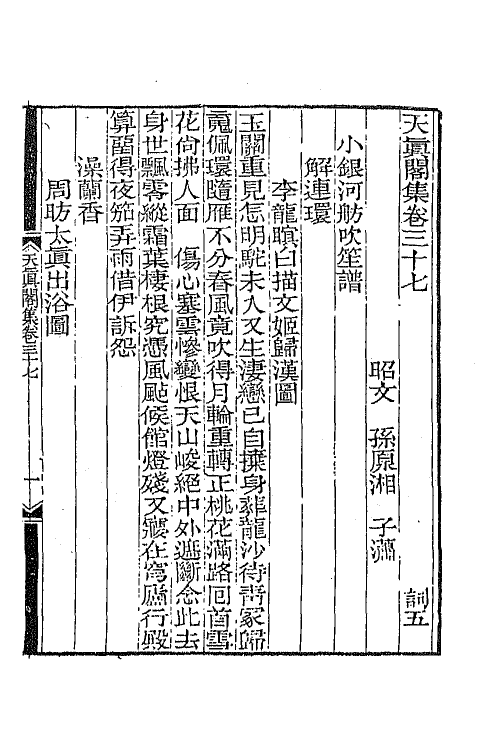 天眞閣集卷三十七　詞五
昭文　孫原湘　子瀟
小銀河舫吹笙譜
解連環
李龍瞑白描文姬歸漢圖
玉關重見怎明駝未入又生淒戀已自擽身葬龍沙待靑冢歸
䰟佩環隨雁不分春風竟吹得月輪重轉正桃花滿路囘首雪
花尙拂人面　傷心塞雲慘變恨天山峻絕中外遮斷念此去
身世飄零縱霜葉棲根究憑風颭候館燈殘又夢在穹廬行殿
算畱得夜笳弄雨借伊訴怨
澡蘭香
周昉太眞出浴圖
天眞閣集卷三十七
一